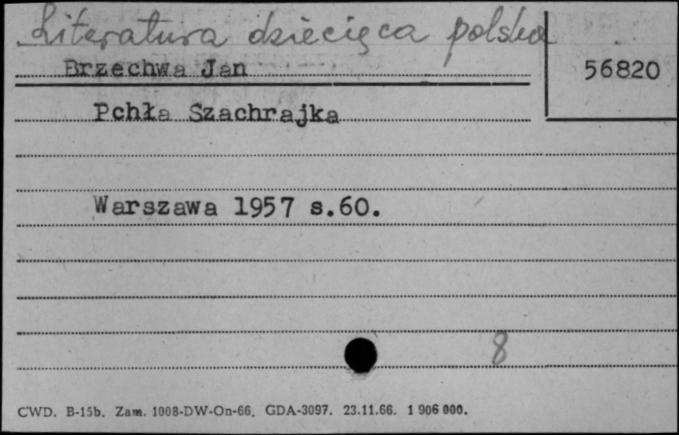 Literatura dziecięca polska
Brzechwa Jan
56820
Pchła Szachrajka
Warszawa 1957 s.60.
8
CWD. B-15b. Zam. 1008-DW-On-66. GDA-3097. 23.11.66. 1 906 000.